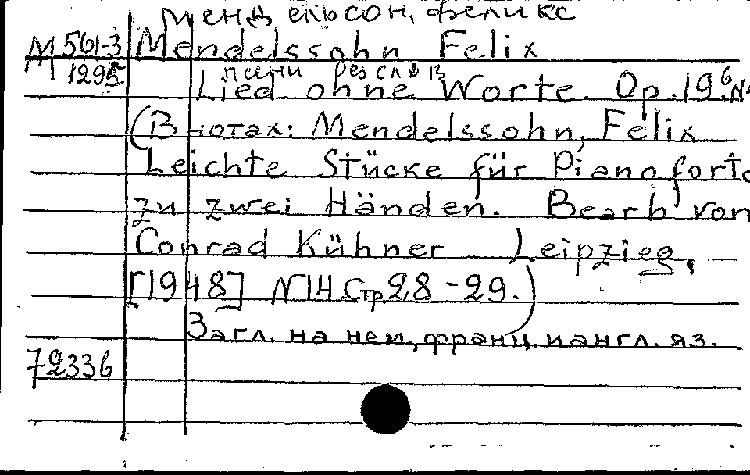 Мендельсон, Феликс
М 561-3 Mendelssohn Felix
1295 песни без слов
Lied ohne Worte. Op. 19 6 N
(В нотах: Mendelssohn, Felix
Leichte Stücke für Pianoforte
zu zwei Händen. Bearb von
Conrad Kühner Leipzieg,
[1948] N 14 Стр 28-29.)
Загл. на нем, франц. и англ. яз.
72336